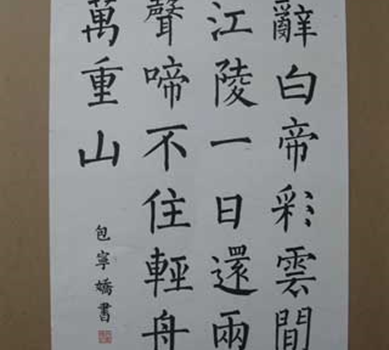 辭白帝彩雲間
江陵一日還兩
聲啼不住輕舟
萬重山
包寧嬌書